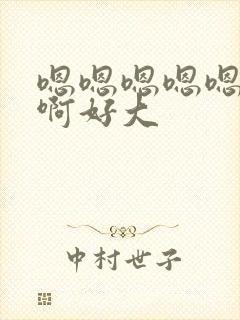 嗯嗯嗯嗯嗯
啊好大
中村世子